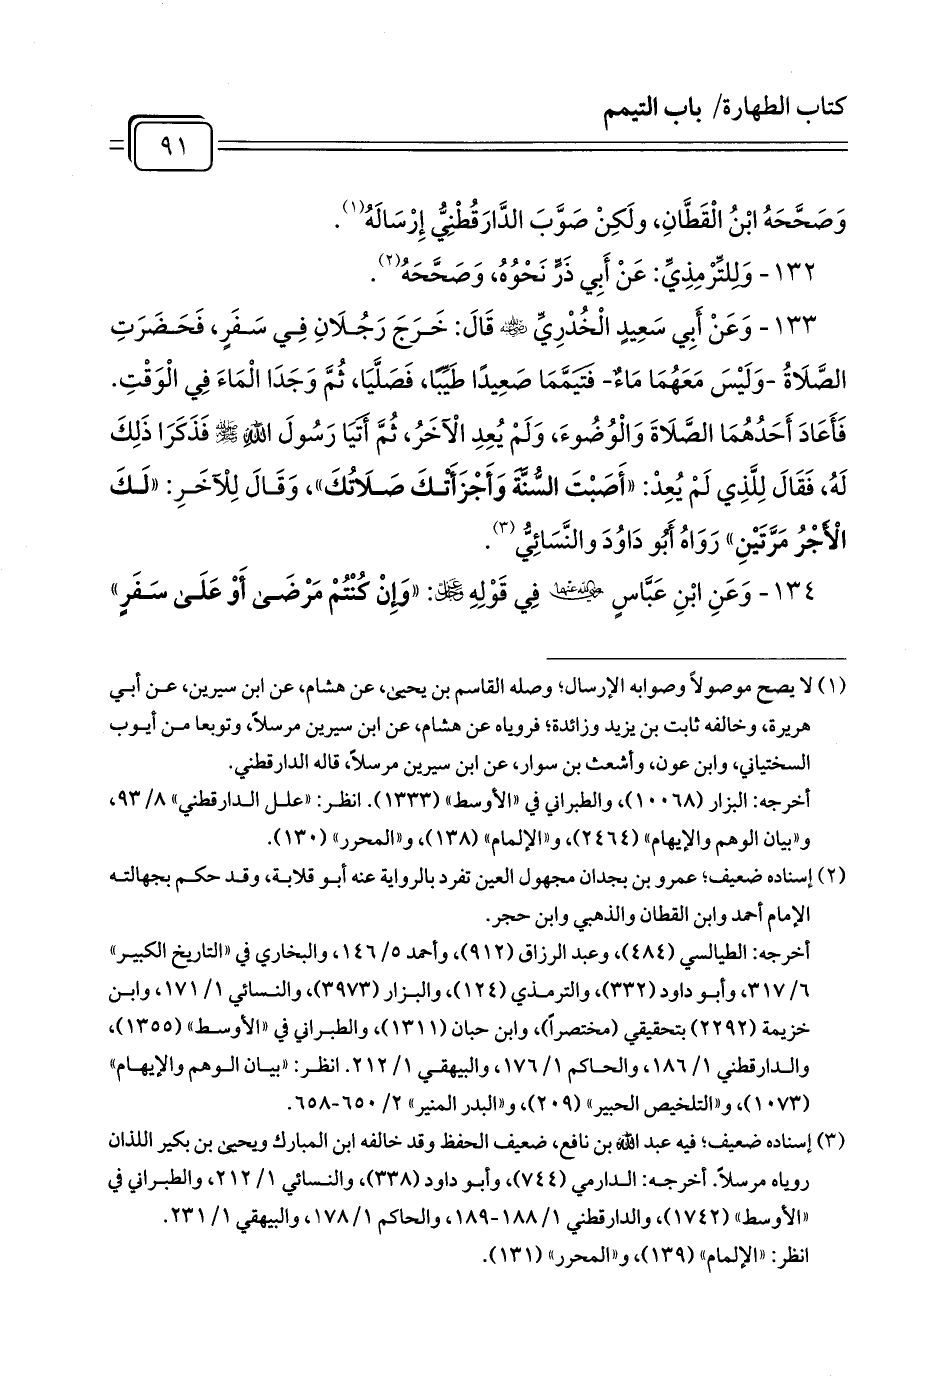 كتاب الطهارة/ باب التيمم
٩١
وَصَحَّحَهُ ابْنُ الْقَطَّانِ، ولَكِنْ صَوَّبَ الدَّارَقُطْنِيُّ إِرْسَالَهُ(١).
١٣٢- وَلِلتِّرْمِذِيِّ: عَنْ أَبِي ذَرٍّ نَحْوُهُ، وَصَحَّحَهُ(٢).
١٣٣- وَعَنْ أَبِي سَعِيدٍ الْخُدْرِيِّ رضي الله عنه قَالَ: خَرَجَ رَجُلَانِ فِي سَفَرٍ، فَحَضَرَتِ
الصَّلَاةُ -وَلَيْسَ مَعَهُمَا مَاءٌ- فَتَيَمَّمَا صَعِيدًا طَيِّبًا، فَصَلَّيَا، ثُمَّ وَجَدَا الْمَاءَ فِي الْوَقْتِ.
فَأَعَادَ أَحَدُهُمَا الصَّلَاةَ وَالْوُضُوءَ، وَلَمْ يُعِدِ الْآخَرُ، ثُمَّ أَتَيَا رَسُولَ اللهِ ﷺ فَذَكَرَا ذَلِكَ
لَهُ، فَقَالَ لِلَّذِي لَمْ يُعِدْ: «أَصَبْتَ السُّنَّةَ وَأَجْزَأَتْكَ صَلَاتُكَ»، وَقَالَ لِلْآخَرِ: «لَكَ
الْأَجْرُ مَرَّتَيْنِ» رَوَاهُ أَبُو دَاوُدَ والنَّسَائِيُّ(٣).
١٣٤- وَعَنِ ابْنِ عَبَّاسٍ رضي الله عنهما فِي قَوْلِهِ عز وجل: «وَإِنْ كُنْتُمْ مَرْضَى أَوْ عَلَى سَفَرٍ»
(١) لا يصح موصولاً وصوابه الإرسال؛ وصله القاسم بن يحيى، عن هشام، عن ابن سيرين، عن أبي
هريرة، وخالفه ثابت بن يزيد وزائدة؛ فروياه عن هشام، عن ابن سيرين مرسلاً، وتوبعا من أيوب
السختياني، وابن عون، وأشعث بن سوار، عن ابن سيرين مرسلاً، قاله الدارقطني.
أخرجه: البزار (١٠٠٦٨)، والطبراني في «الأوسط» (١٣٣٣). انظر: «علل الدارقطني» ٨/ ٩٣،
و«بيان الوهم والإيهام» (٢٤٦٤)، و«الإلمام» (١٣٨)، و«المحرر» (١٣٠).
(٢) إسناده ضعيف؛ عمرو بن بجدان مجهول العين تفرد بالرواية عنه أبو قلابة، وقد حكم بجهالته
الإمام أحمد وابن القطان والذهبي وابن حجر.
أخرجه: الطيالسي (٤٨٤)، وعبد الرزاق (٩١٢)، وأحمد ٥/ ١٤٦، والبخاري في «التاريخ الكبير»
٦/ ٣١٧، وأبو داود (٣٣٢)، والترمذي (١٢٤)، والبزار (٣٩٧٣)، والنسائي ١/ ١٧١، وابن
خزيمة (٢٢٩٢) بتحقيقي (مختصراً)، وابن حبان (١٣١١)، والطبراني في «الأوسط» (١٣٥٥)،
والدارقطني ١/ ١٨٦، والحاكم ١/ ١٧٦، والبيهقي ١/ ٢١٢. انظر: «بيان الوهم والإيهام»
(١٠٧٣)، و«التلخيص الحبير» (٢٠٩)، و«البدر المنير» ٢/ ٦٥٠-٦٥٨.
(٣) إسناده ضعيف؛ فيه عبد الله بن نافع، ضعيف الحفظ وقد خالفه ابن المبارك ويحيى بن بكير اللذان
روياه مرسلاً. أخرجه: الدارمي (٧٤٤)، وأبو داود (٣٣٨)، والنسائي ١/ ٢١٢، والطبراني في
«الأوسط» (١٧٤٢)، والدارقطني ١/ ١٨٨-١٨٩، والحاكم ١/ ١٧٨، والبيهقي ١/ ٢٣١.
انظر: «الإلمام» (١٣٩)، و«المحرر» (١٣١).